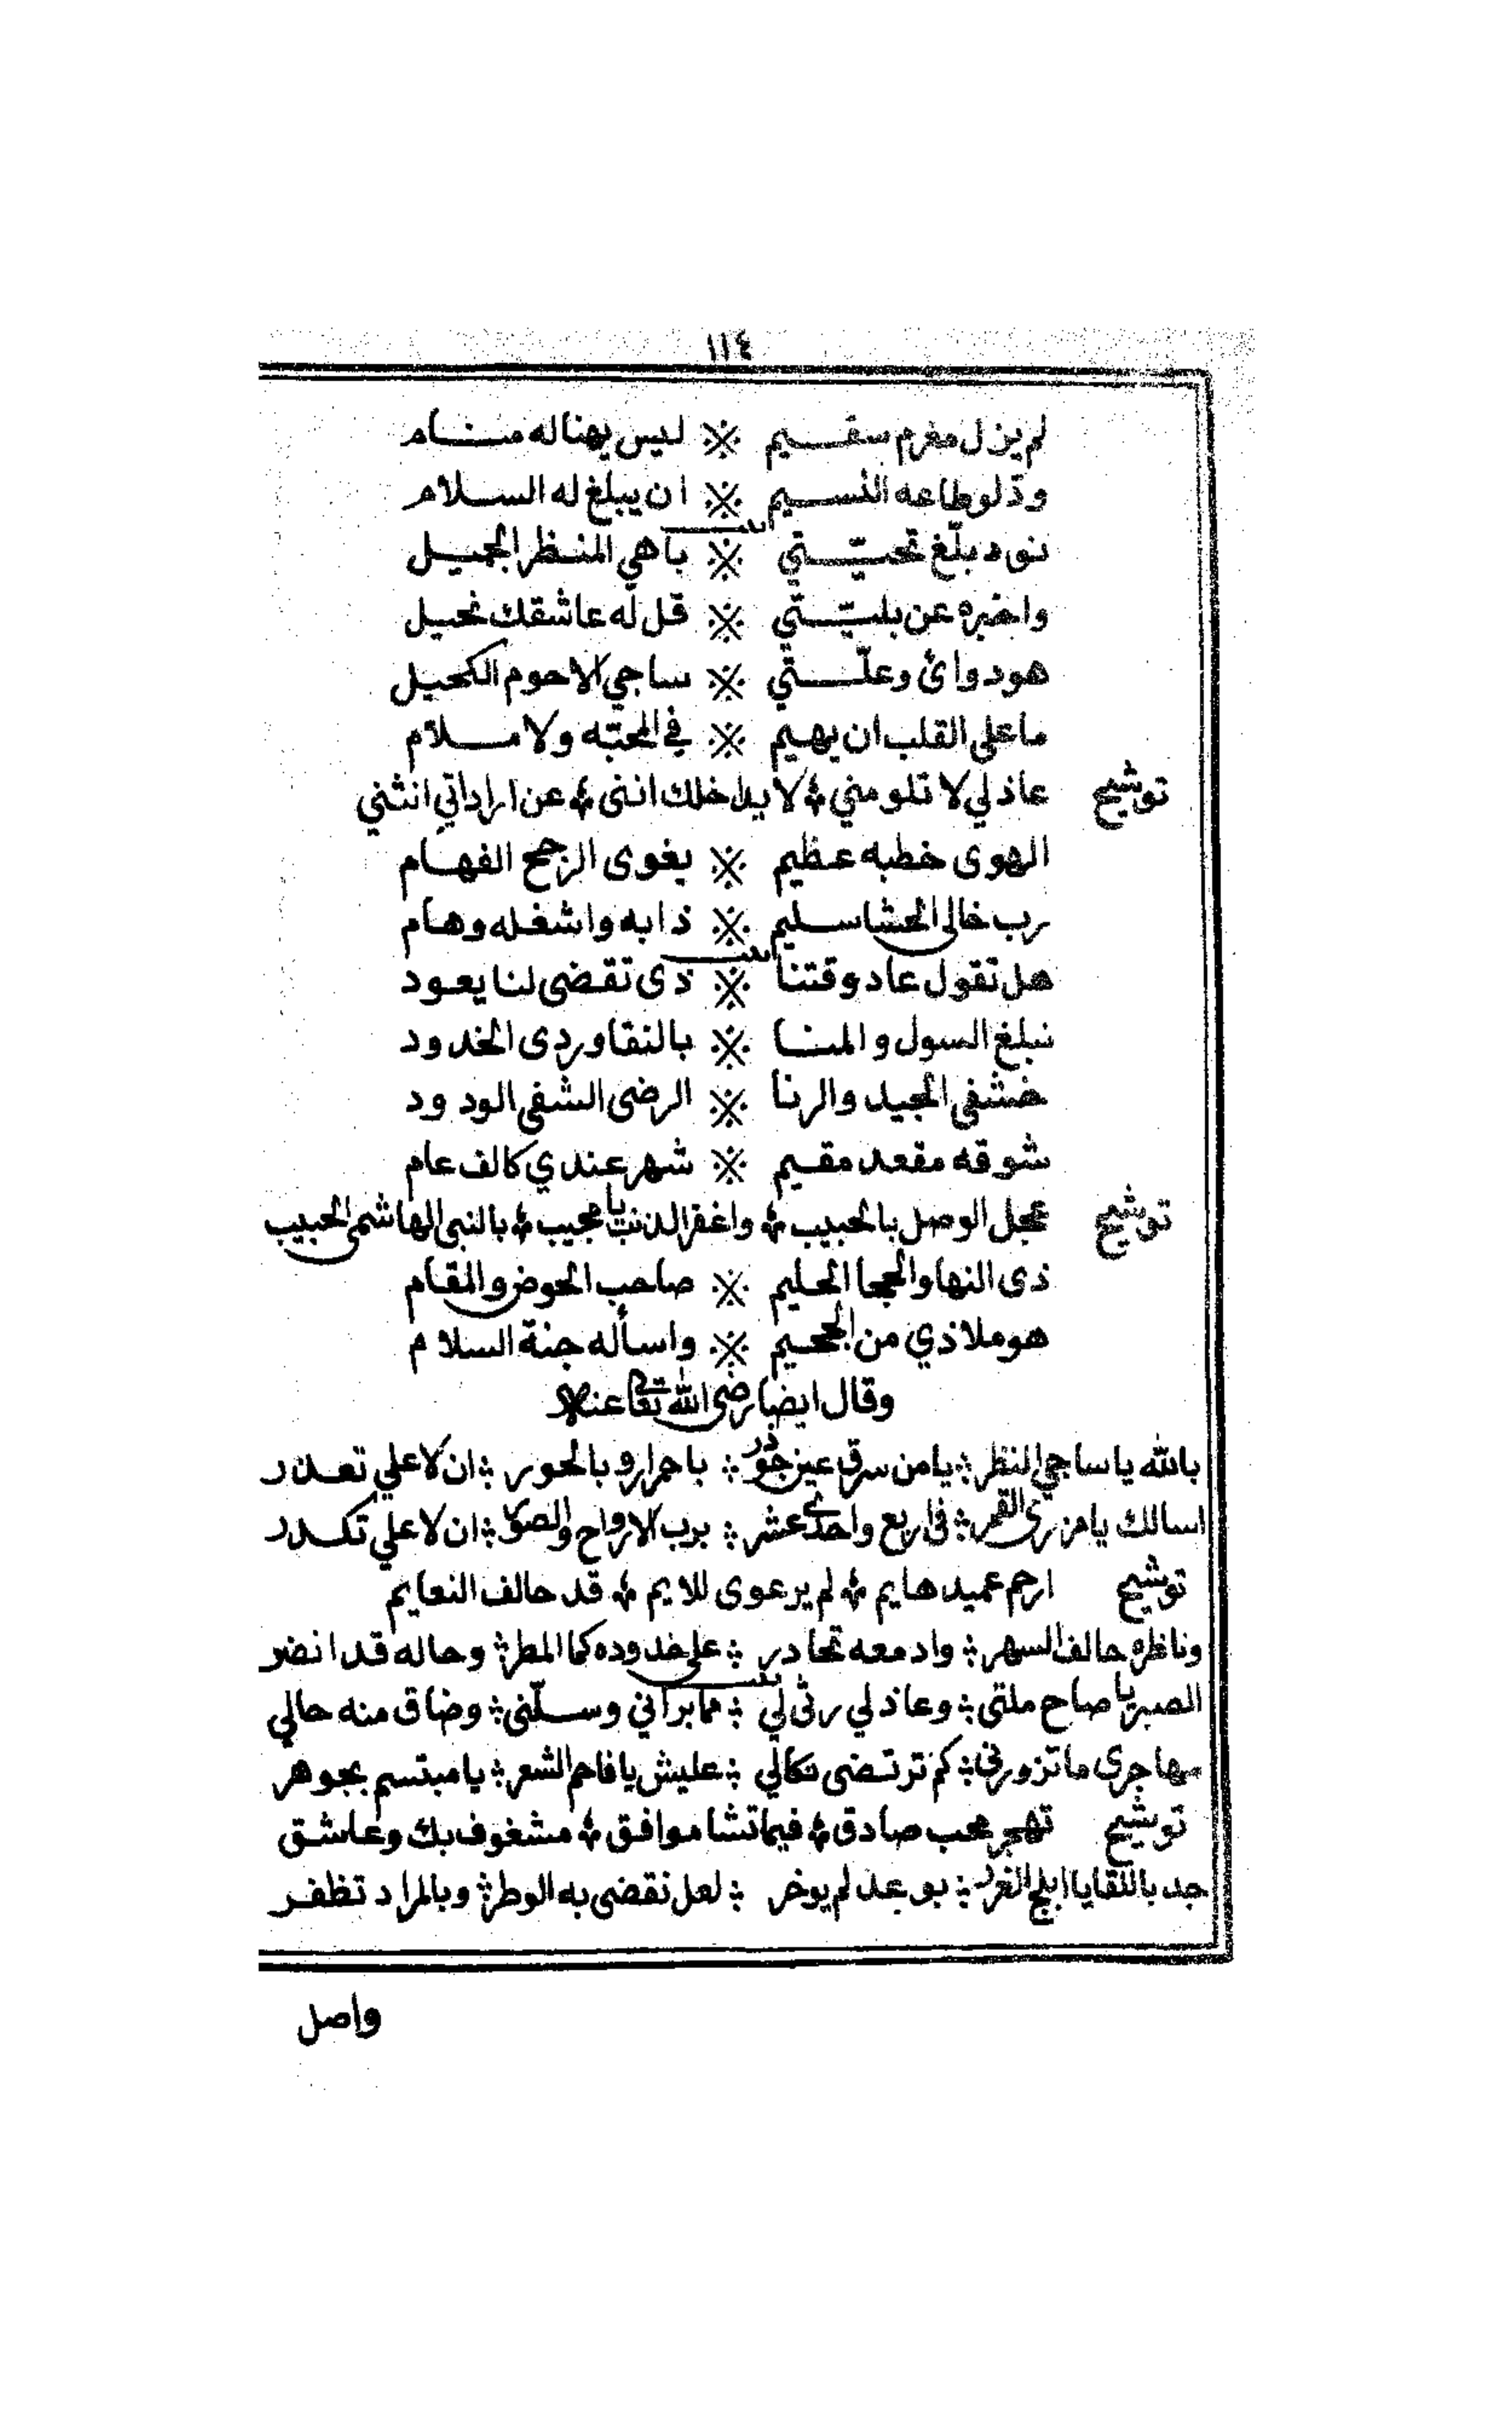 ١١٤
لم يزل مغرم سقيم ※ ليس يهنا له منام
ودّ لو طاعه النسيم ※ ان يبلغ له السلام
بيت
نود بلّغ تحيّتي ※ باهي المنظر الجميل
واخبره عن بليّتي ※ قل له عاشقك نحيل
هو دوائ وعلّتي ※ ساجي الاحوم الكحيل
ما على القلب ان يهيم ※ في المحبّه ولا ملام
توشيح عاذلي لا تلومني ؞ لا يداخلك انني ؞ عن اراداتي انثني
الهوى خطبه عظيم ※ يغوى الزجح الفهام
رب خالى الحشا سليم ※ ذا به واشغله وهام
بيت
هل تقول عاد وقتنا ※ ذى تقضى لنا يعود
نبلغ السول والمنا ※ بالنقا وردى الخدود
خشفى الجيد والرنا ※ الرضى الشفى الودود
شوقه مقعد مقيم ※ شهر عندي كالف عام
توشيح عجل الوصل بالحبيب ؞ واغفر الذنب يا مجيب ؞ بالنبى الهاشمى الحبيب
ذى النها والحجا الحليم ※ صاحب الحوض والمقام
هو ملاذي من الجحيم ※ واسأله جنة السلام
وقال ايضا رضى الله تعا عنه
بالله يا ساجي النظر ؞ يا من سرق عين جوذر ؞ باحمرار وبالحور ؞ ان لا علي تعذر
اسالك يا من زرى القمر ؞ فى اربع واحدى عشر ؞ برب الارواح والصور ؞ ان لا علي تكدر
توشيح ارحم عميد هايم ؞ لم يرعوى للايم ؞ قد حالف النعايم
وناظره حالف السهر ؞ وادمعه تحادر ؞ على خدوده كما المطر ؞ وحاله قد انضر
بيت
الصبر يا صاح ملنى ؞ وعاذلي رثى لي ؞ مما براني وسلّنى ؞ وضاق منه حالي
مهاجرى ما تزورنى ؞ كم ترتضى نكالي ؞ عليش يا فاحم الشعر ؞ يا مبتسم بجوهر
توشيح تهجر محب صادق ؞ فيما تشا موافق ؞ مشغوف بك وعاشق
جد باللقا يا ابلج الغرر ؞ بوعد لم يوخر ؞ لعل نقضى به الوطر ؞ وبالمراد تظفر
واصل